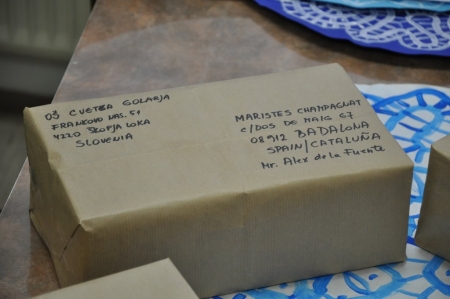 OŠ CVETKA GOLARJA
FRANKOVO NAS. 51
4220 ŠKOFJA LOKA
SLOVENIA
MARISTES CHAMPAGNAT
C/DOS DE MAIG 67
08912 BADALONA
SPAIN/CATALUÑA
Mr. Alex de la Fuente